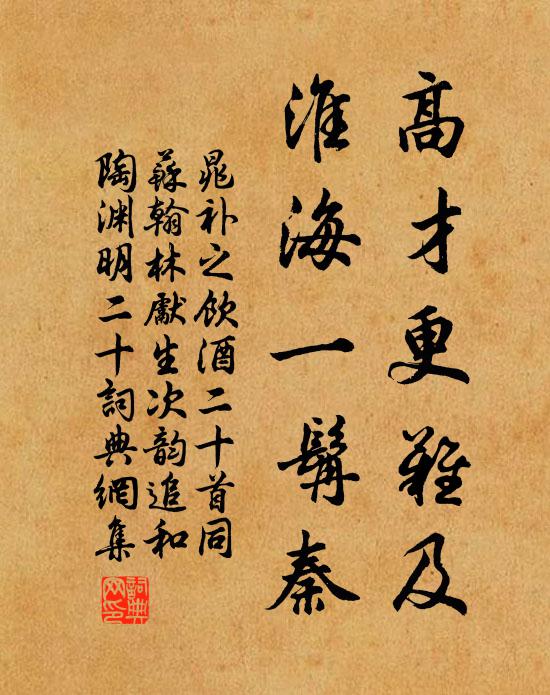 高才更難及
淮海一髯秦
晁补之飲酒二十首同
蘇翰林獻生次韵追和
陶渊明二十詞典網集
詞典网印